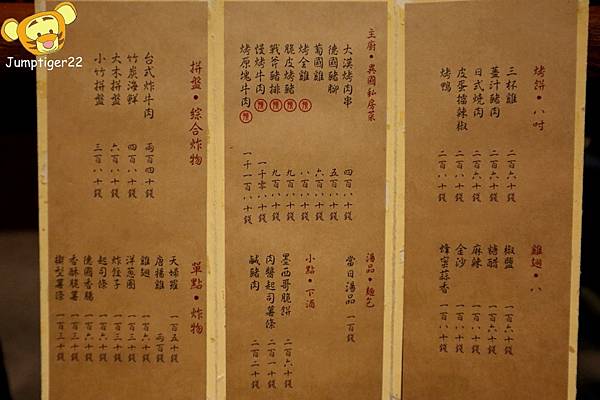 Jumptiger22
烤餅・八吋
三杯雞 二百八十錢
薑汁豬肉 二百八十錢
日式燒肉 二百八十錢
皮蛋擂辣椒 二百八十錢
烤鴨 二百八十錢
雞翅・八
椒鹽 一百八十錢
糖醋 一百八十錢
麻辣 一百八十錢
金沙 一百八十錢
蜂蜜蒜香 一百八十錢
主廚・異國私房菜
大漠烤肉串 四百八十錢
德國豬腳 五百八十錢
葡國雞 六百八十錢
烤全雞 預 八百八十錢
脆皮烤豬 預 九百八十錢
戰斧豬排 預 九百八十錢
慢烤牛肉 預 一千零八十錢
烤原塊牛肉 預 一千一百八十錢
湯品・麵包
當日湯品 一百錢
小點・下酒
墨西哥脆餅 二百六十錢
肉醬起司薯條 二百一十錢
鹹豬肉 二百二十錢
拼盤・綜合炸物
台式炸牛肉 兩百四十錢
竹炭海鮮 四百八十錢
大木拼盤 六百八十錢
小竹拼盤 三百八十錢
單點・炸物
天婦羅 一百五十錢
唐揚雞 兩百錢
雞翅 一百六十錢
洋蔥圈 一百三十錢
炸餃子 一百三十錢
起司條 一百六十錢
德國香腸 一百六十錢
香酥脆薯 一百三十錢
樹型薯條 一百三十錢